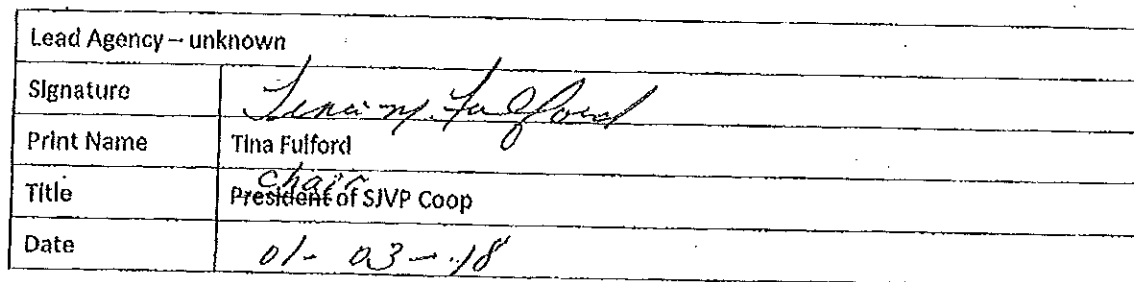 Lead Agency – unknown
Signature Tina M. Fulford
Print Name Tina Fulford
Chair
Title President of SJVP Coop
Date 01-03-18